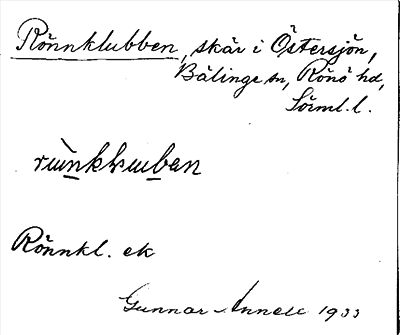 Rönnklubben, skär i Östersjön,
Bälinge sn, Rönö hd,
Sörml. l.
Rönnkl. ek
Gunnar 1933